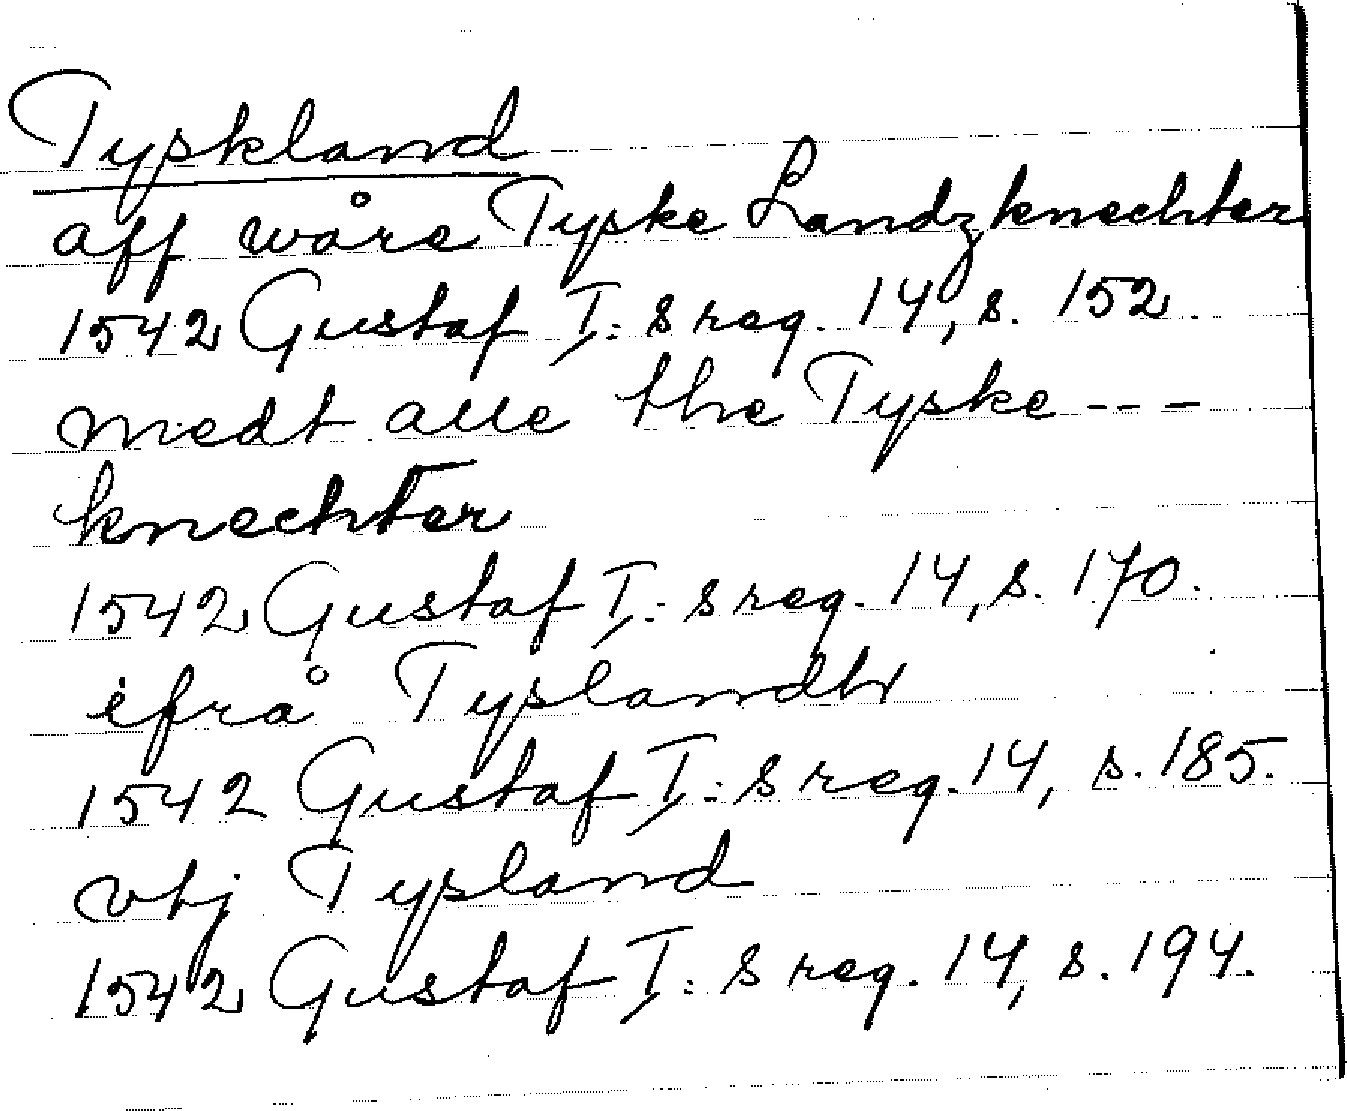 Tyskland
aff wåre Tyske Landzknechter
1542 Gustaf I:s reg. 14, s. 152.
medt alle the Tyske ---
knechter
1542 Gustaf I:s reg. 14, s. 170.
ifrå Tyslandtt
1542 Gustaf I:s reg. 14, s. 185.
vtj Tysland
1542 Gustaf I:s reg. 14, s. 194.